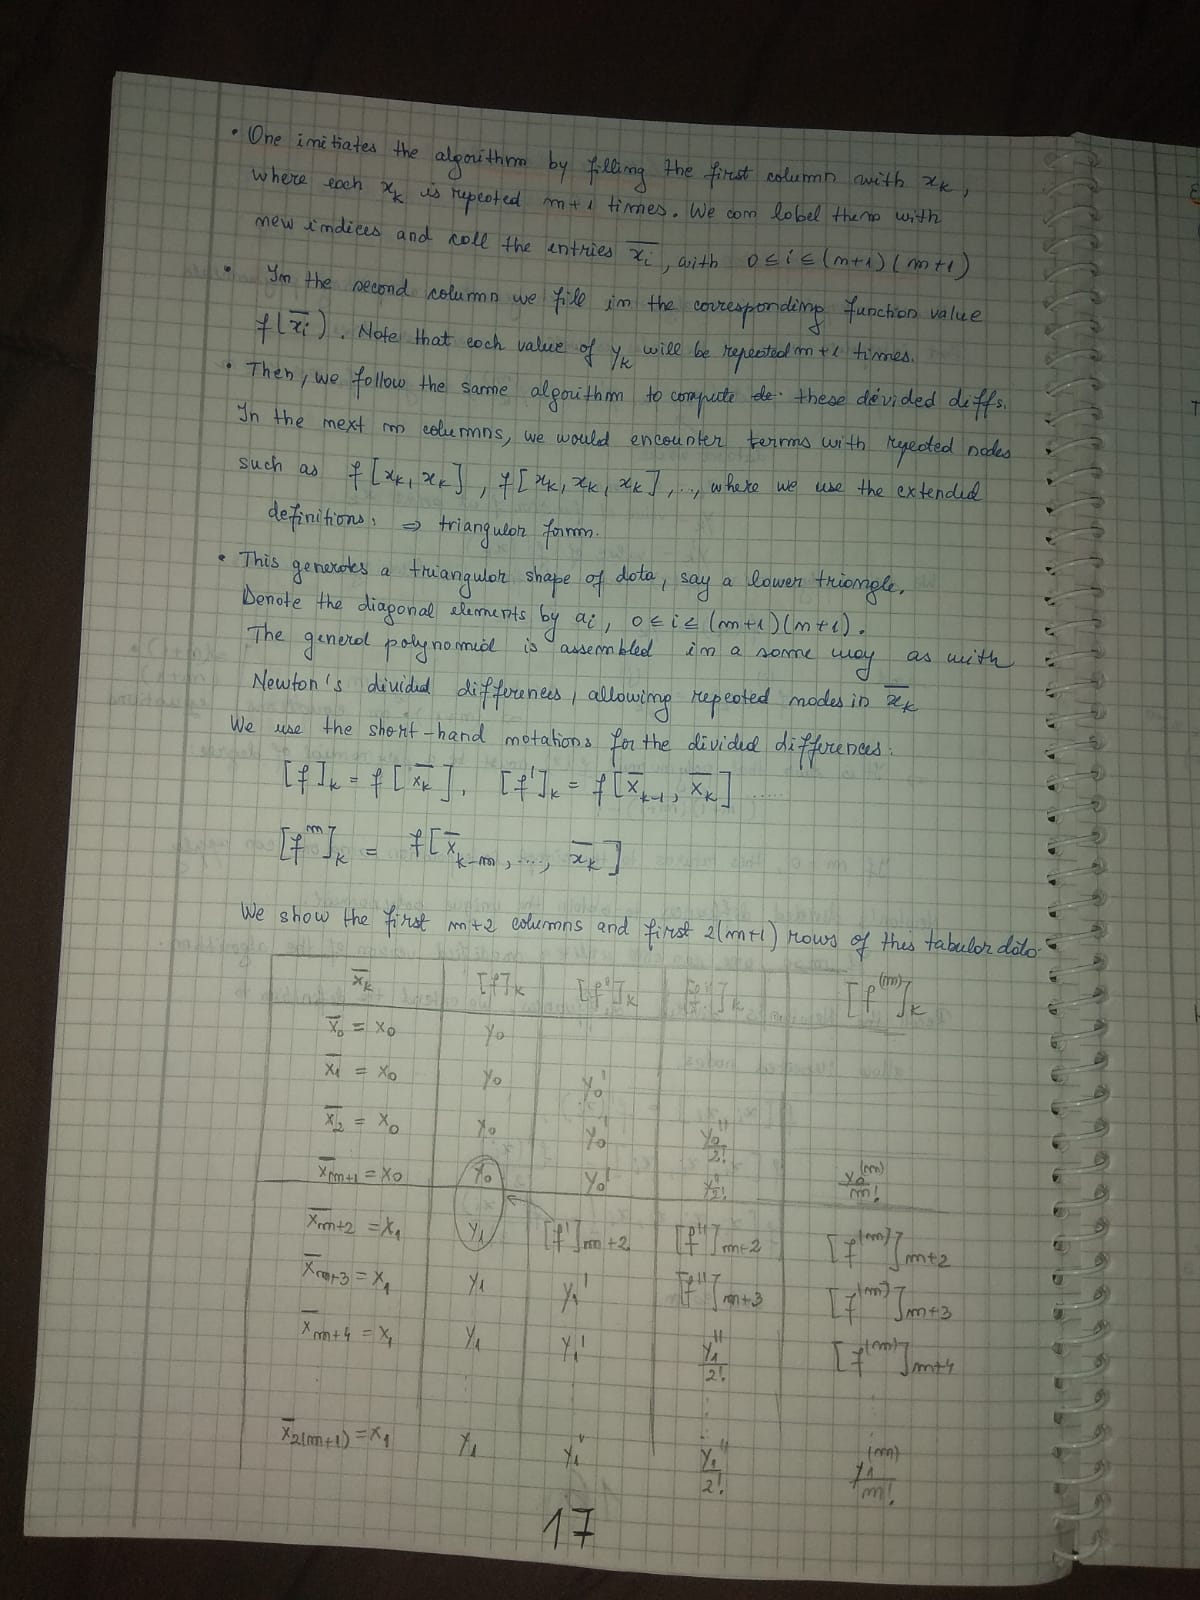 • One initiates the algorithm by filling the first column with x_k,
where each x_k is repeated m+1 times. We can label them with
new indices and call the entries x̄_i, with 0 ≤ i ≤ (n+1)(m+1)
• In the second column we fill in the corresponding function value
f(x̄_i). Note that each value of y_k will be repeated m+1 times.
• Then, we follow the same algorithm to compute de these devided diffs.
In the next m columns, we would encounter terms with repeated nodes
such as f[x_k, x_k], f[x_k, x_k, x_k], ..., where we use the extended
definitions. ⇒ triangular form.
• This generates a triangular shape of data, say a lower triangle.
Denote the diagonal elements by a_i, 0 ≤ i ≤ (n+1)(m+1).
The general polynomial is assembled in a same way as with
Newton's divided differences, allowing repeated nodes in x̄_k
We use the short-hand notations for the divided differences:
[f]_k = f[x̄_k], [f']_k = f[x̄_{k-1}, x̄_k] .....
[f^m]_k = f[x̄_{k-m}, ..., x̄_k]
We show the first m+2 columns and first 2(m+1) rows of this tabular data.
x̄_k [f]_k [f']_k [f'']_k [f^(m)]_k
x̄_0 = x_0 y_0
x̄_1 = x_0 y_0 y_0'
x̄_2 = x_0 y_0 y_0' y_0''/2!
x̄_{m+1} = x_0 y_0 y_0' y_0''/2! y_0^(m)/m!
x̄_{m+2} = x_1 y_1 [f']_{m+2} [f'']_{m+2} [f^(m)]_{m+2}
x̄_{m+3} = x_1 y_1 y_1' [f'']_{m+3} [f^(m)]_{m+3}
x̄_{m+4} = x_1 y_1 y_1' y_1''/2! [f^(m)]_{m+4}
x̄_{2(m+1)} = x_1 y_1 y_1' y_1''/2! y_1^(m)/m!
17